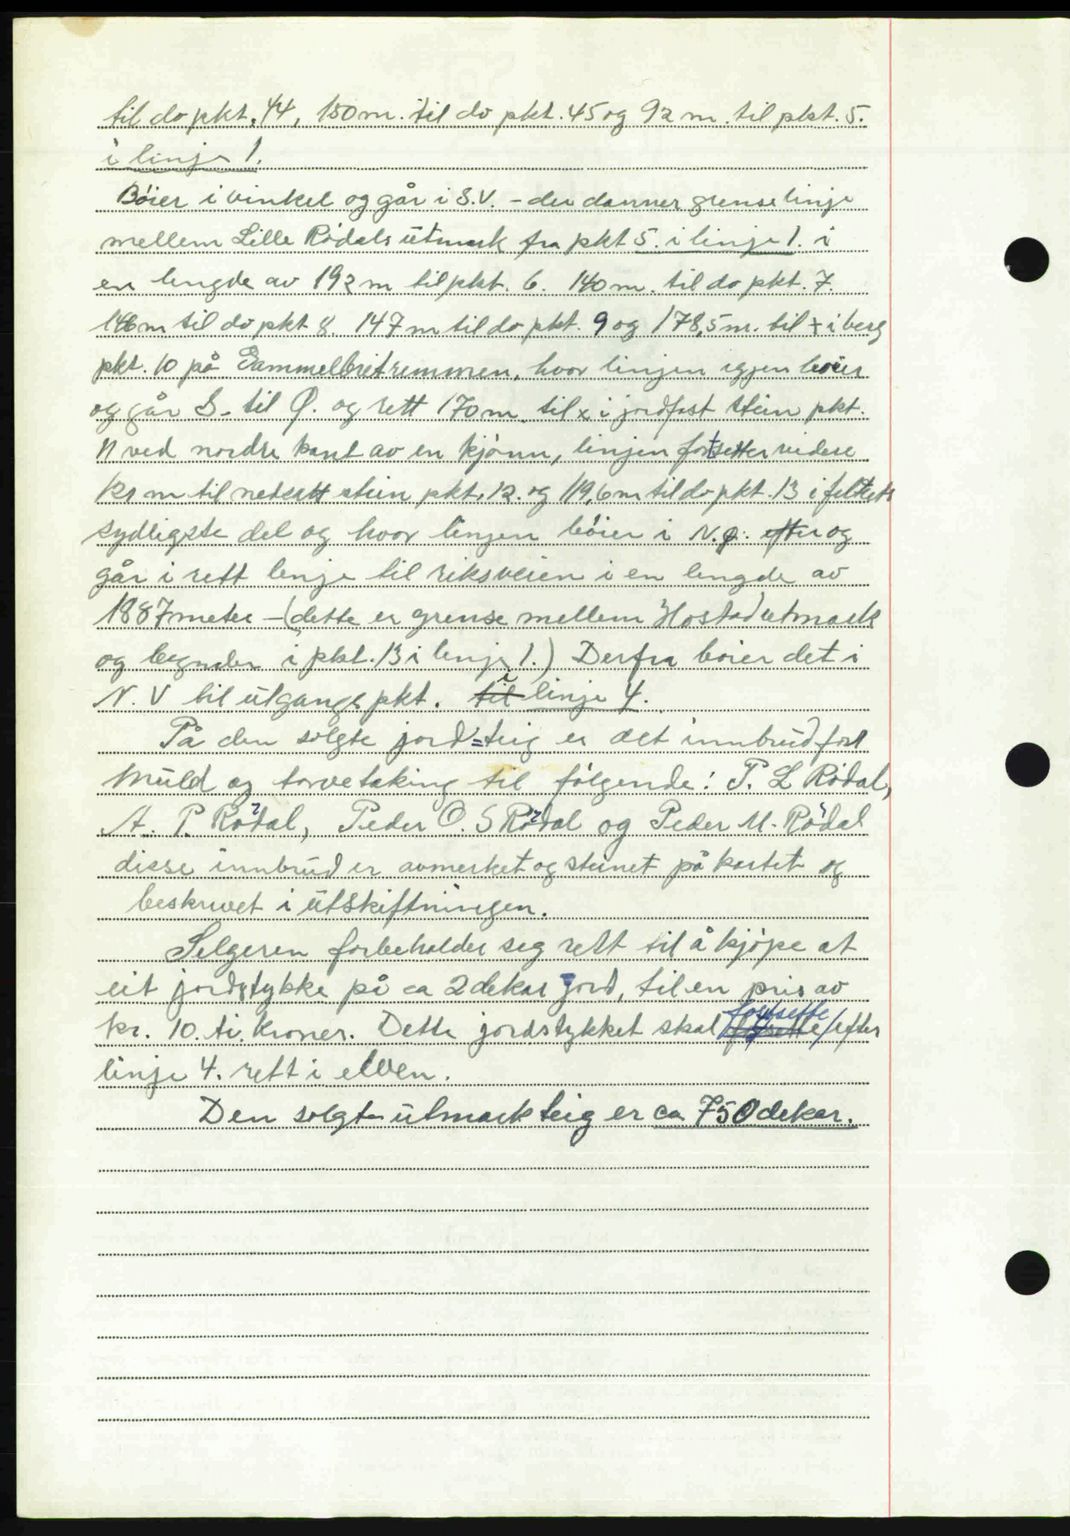 til do pkt. 44, 150 m. til do pkt. 45 og 92 m. til pkt. 5.
i linje 1.
Bøier i vinkel og går i S.V. – der danner grense linje
mellem Lille Rødals utmark fra pkt 5. i linje 1. i
en lengde av 192 m til pkt. 6. 140 m. til do pkt. 7.
m til do pkt 8. 147 m til do pkt. 9 og 178,5 m. til x i berg
pkt. 10 på Gammelbretremmen, hvor linjen igjen bøier
og går S- til Ø. og rett 170 m. til x i jordfast stein pkt.
11 ved nordre kant av en kjønn, linjen fortsetter videre
m til netsatt stein pkt. 12. og 119,6 m til do pkt. 13 i feltets
sydligste del og hvor linjen bøier i N.Ø. efter og
går i rett linje til riksveien i en lengde av
1887 meter – (dette er grense mellem Hostad utmark
og begynder i pkt. 13 i linje 1.) Derfra bøier det i
N. V til utgangs pkt. til i linje 4.
På den solgte jord-teig er det innbrud for
muld og torvetaking til følgende: P. L Rødal,
A. P. Rødal, Peder O. S Rødal og Peder M. Rødal
disse innbrud er avmerket og steinet på kartet og
beskrevet i utskiftningen.
Selgeren forbeholder seg rett til å kjøpe at
eit jordstykke på ca 2 dekar jord, til en pris av
kr. 10. ti. kroner. Dette jordstykket skal fortsette efter
linje 4. rett i elven.
Den solgte utmark teig er ca 750 dekar.